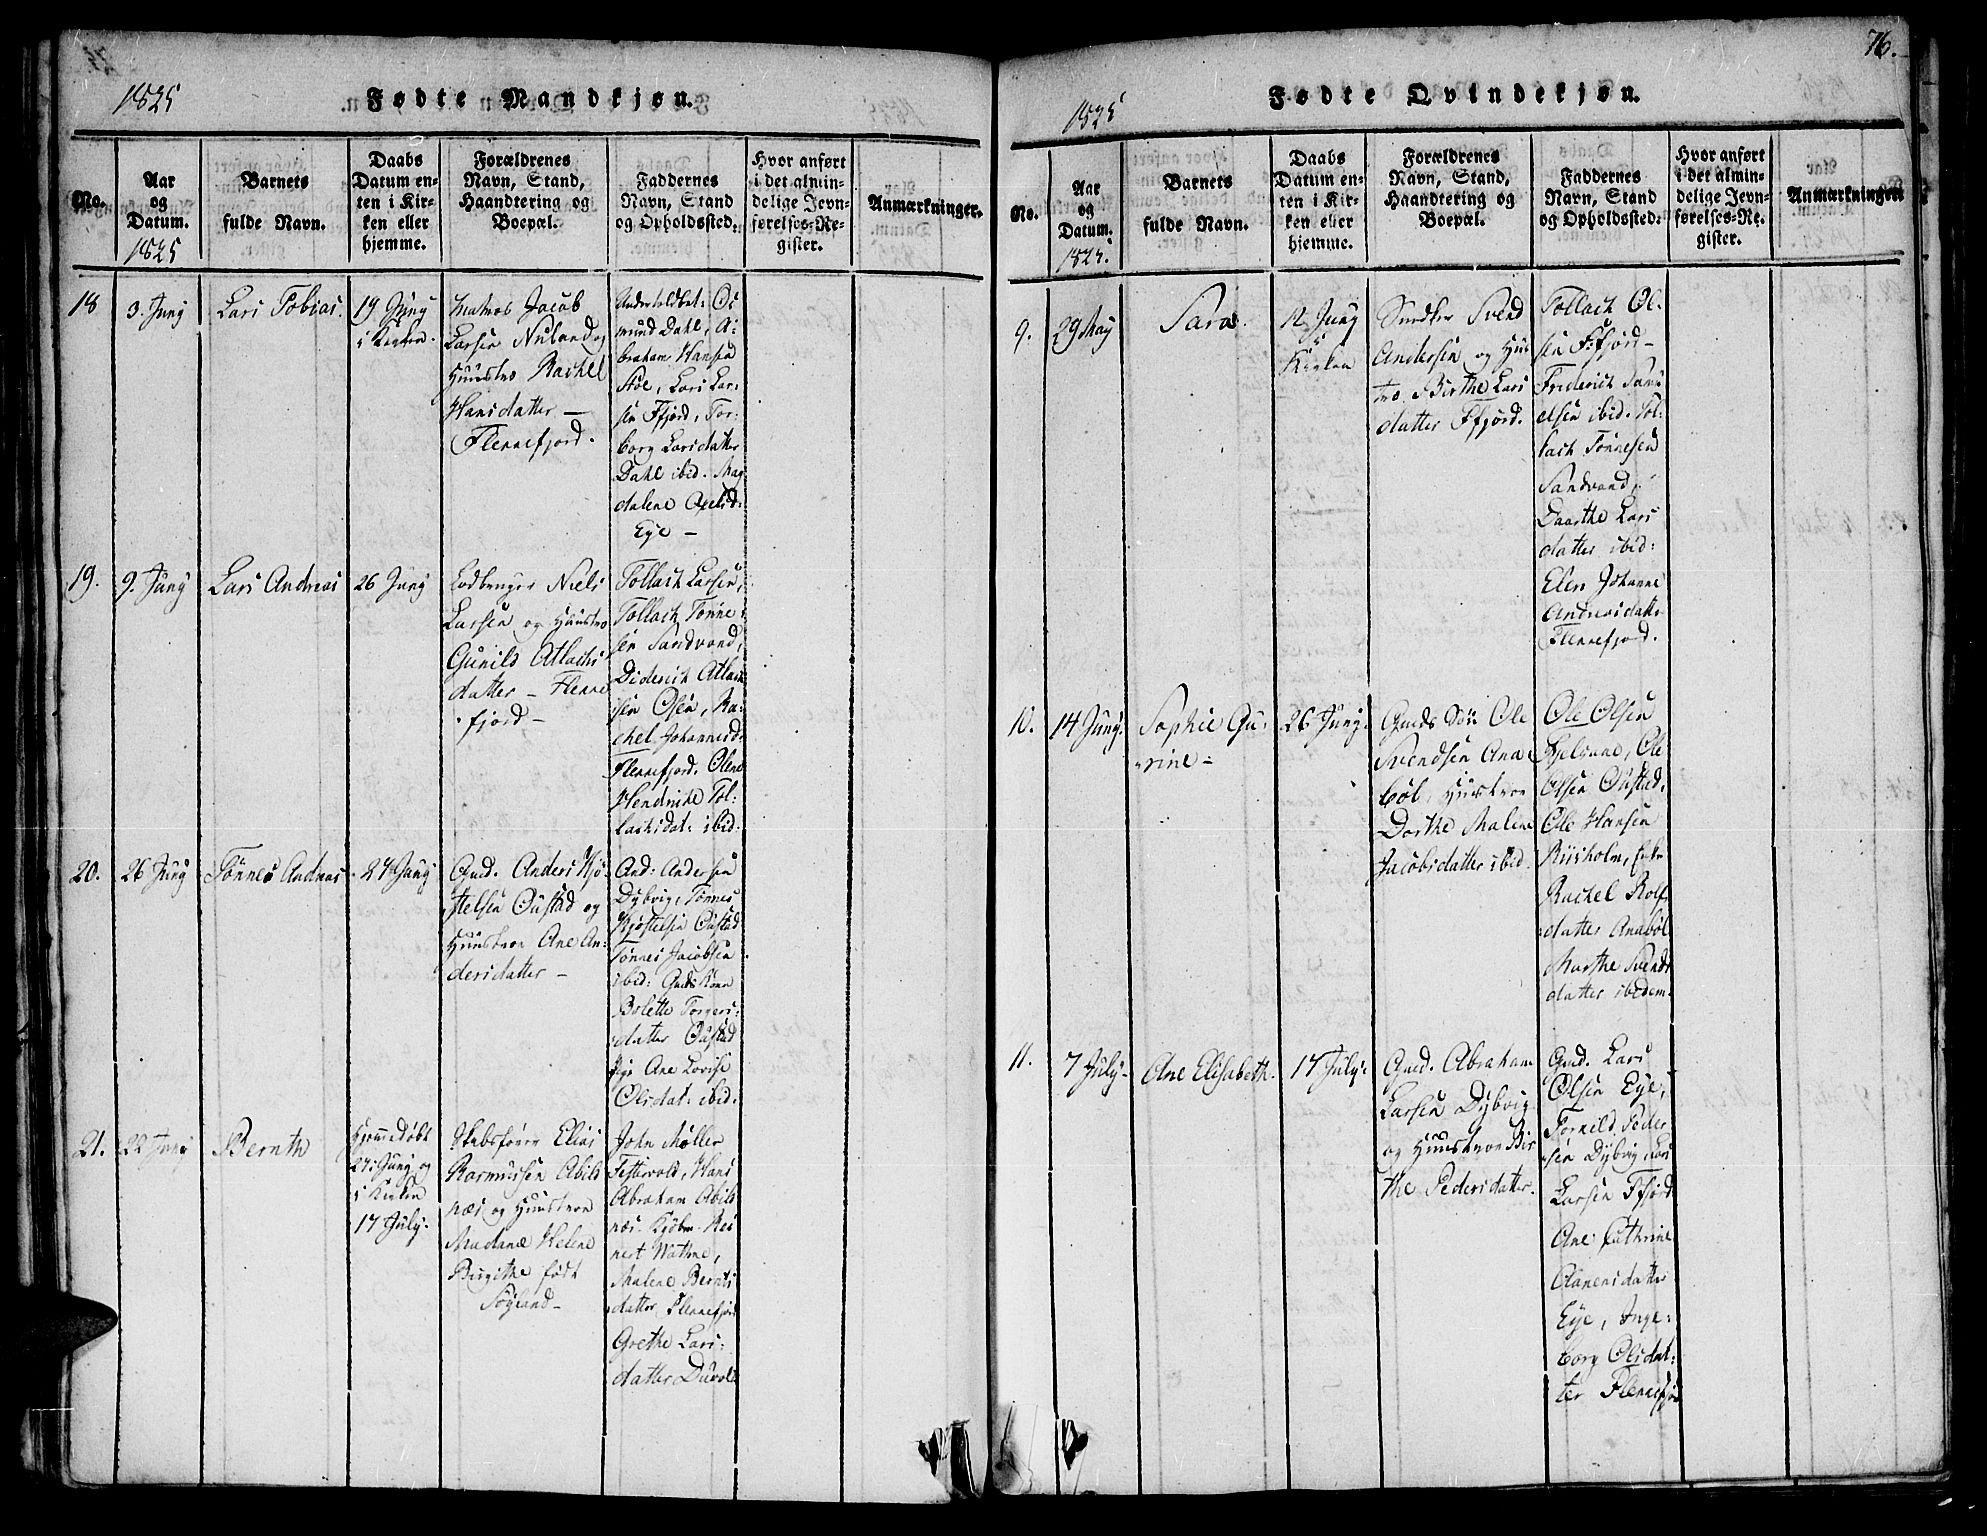 1825
Fødte Mandkjøn.
No.
Aar
og
Datum.
1825
Barnets
fulde Navn.
Daabs
Datum en-
ten i Kir-
ken eller
hjemme.
Forældrenes
Navn, Stand,
Haandtering og
Boepæl.
Faddernes
Navn, Stand
og Opholdssted.
Hvor anført
i det almin-
delige Jevn-
førelses-Re-
gister.
Anmærkninger.
18
3. Juny
Lars Tobias.
19 Juny
i Kirken.
Matros Jacob
Larsen Nuland og
Huustro Rachel
Hansdatter —
Flekkefjord.
Osmund Dahl, A-
braham Hansen
Stoe, Lars Lar-
sen Ffjord, Tor-
borg Larsdatter
Dahl ibid. Mag
dalene
Eye —
19.
9. Juny
Lars Andreas
26 Juny
Niels
Larsen og Huustro
Gunild Atlachs
datter — Flekke
fjord —
Tollach Larsen,
Tollach Tønne
sen Sandvand,
Diderich Atlach
sen Olsen, Ra-
chel Johannesd.
Flekkefjord. Olene
Hendrikke Tol-
lachsdat: ibid.
20.
26 Juny
Tønnes Andreas
Gmd. Anders Kjø-
stelsen Oustad og
Huustroe Ane An-
dersdatter —
And: Andersen
Dybvig, Tønnes
Kjøstelsen Oustad
Tønnes Jacobsen
ibid: Gmds Kone
Bolette Torgers-
datter Oustad
Pige Ane Lovise
Olsdat: ibid.
21.
22 Juny
Bernth
Hjemmedøbt
27: Juny og
i Kirken
17 July.
Skibsfører Elias
Rasmussen Abils
næs og Huustroe
Madame Helene
Birgithe født
Søyland —
John Møller
Hans
Abraham Abils
næs. Kjøbm. Rei
nert Wathne,
Malene Bernts
datter Flekkefjord
Grethe Lars-
datter
76.
1825
Fødte Qvindekjøn.
No.
Aar
og
Datum.
1825.
Barnets
fulde Navn.
Daabs
Datum en-
ten i Kir-
ken eller
hjemme.
Forældrenes
Navn, Stand,
Haandtering og
Boepæl.
Faddernes
Navn, Stand
og Opholdssted.
Hvor anført
i det almin-
delige Jevn-
førelses-Re-
gister.
Anmærkningen
9.
29 May
Sara.
12 Juny
i
Kirken
Smedker Svend
Andersen og Huus
tro. Birthe Lars
datter Ffjord.
Tollach Ol-
sen Ffjord —
Friderich Samu
elsen ibid. Tol-
lach Tønnesen
Sandvand,
Daarthe Lars
datter ibid:
Elen Johanne
Andreasdatter
Flekkefjord.
10.
14 Juny.
Sophie Gu-
rine —
26 Juny.
Gmds Søn Ole
Svendsen Ana
bøl, Huustroe
Dorthe Malene
Jacobsdatter ibid.
Ole Olsen
Ole
Olsen Oustad.
Ole Hansen
Riisholm,
Rachel Rolfs
datter Anabøl
Marthe Svends
datter ibidem.
11.
7 July.
Ane Elisabeth.
17 July.
Gmd. Abraham
Larsen Dybvig
og Huustroe Bir
the Pedersdatter.
Gmd. Lars
Olsen Eye,
Tornild Peder
sen Dybvig, Lars
Larsen Ffjord
Ane Cathrine
Aanensdatter
Eye, Inge-
borg Olsdat-
ter Flekkefjor